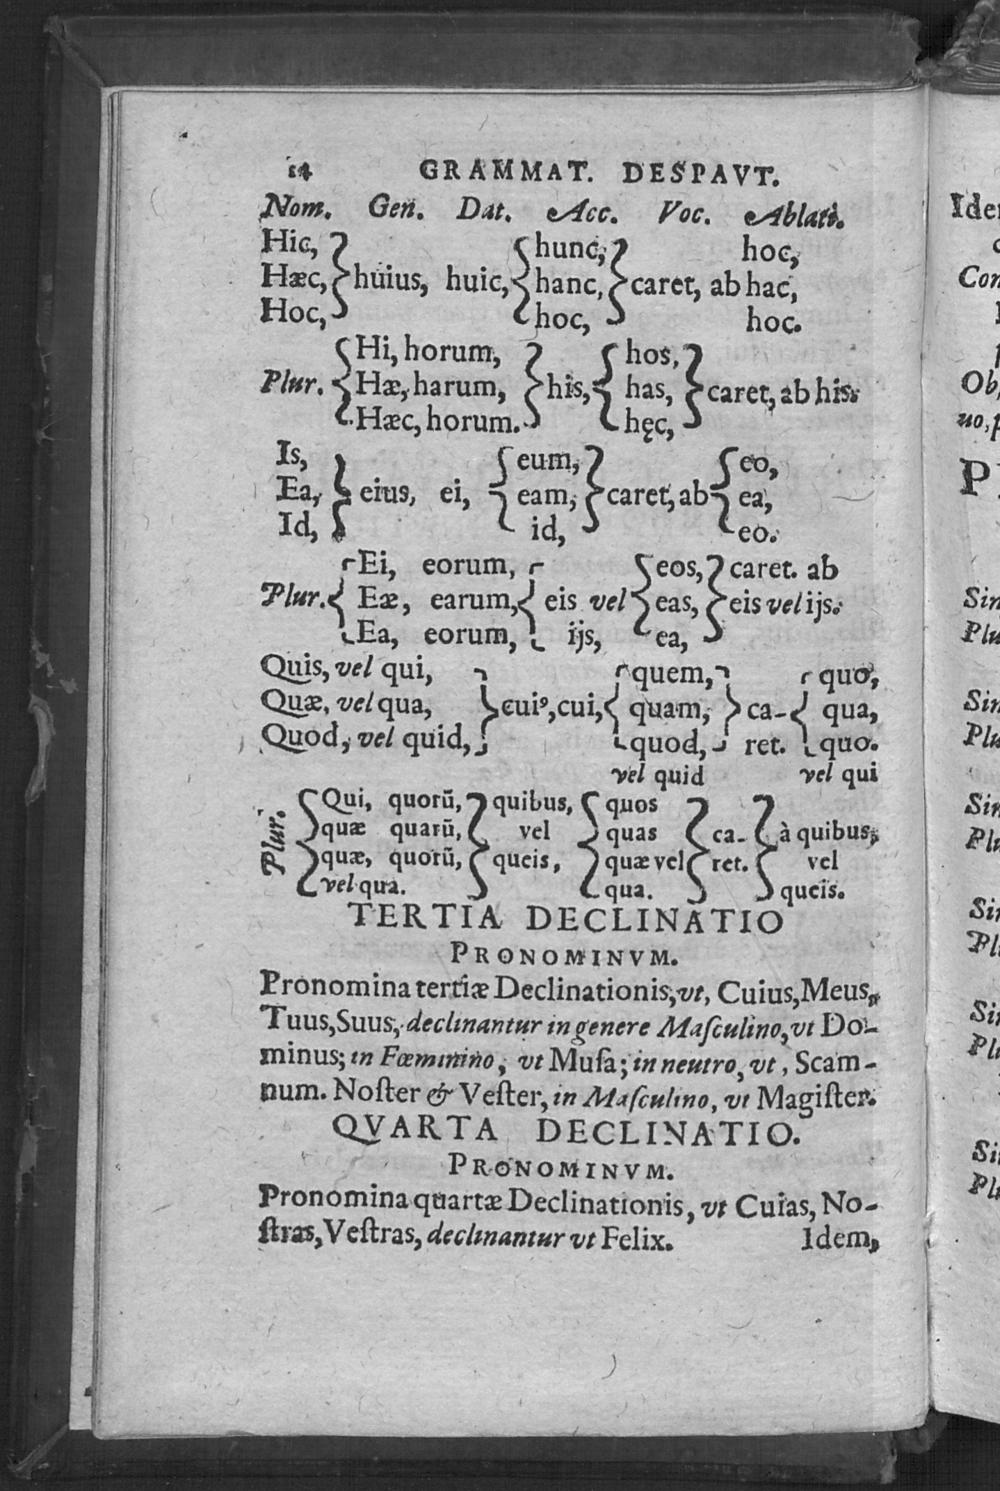 14 GRAMMAT. DESPAVT.
Nom. Gen. Dat. Acc. Voc. Ablati.
Hic, hunc, hoc,
Hæc, huius, huic, hanc, caret, ab hac,
Hoc, hoc, hoc.
Hi, horum, hos,
Plur. Hæ, harum, his, has, caret, ab his.
Hæc, horum. hęc,
Is, eum, eo,
Ea, eius, ei, eam, caret, ab ea,
Id, id, eo.
Ei, eorum, eos, caret. ab
Plur. Eæ, earum, eis vel eas, eis vel ijs.
Ea, eorum, ijs, ea,
Quis, vel qui, quem, quo,
Quæ, vel qua, cuiꝰ, cui, quam, ca- qua,
Quod, vel quid, quod, ret. quo.
vel quid vel qui
Qui, quorũ, quibus, quos
Plur. quæ quarũ, vel quas ca- à quibus,
quæ, quorũ, queis, quæ vel ret. vel
vel qua. qua. queis.
TERTIA DECLINATIO
PRONOMINVM.
Pronomina tertiæ Declinationis, vt, Cuius, Meus,
Tuus, Suus, declinantur in genere Maſculino, vt Do-
minus; in Fœminino, vt Muſa; in neutro, vt, Scam-
num. Noſter & Veſter, in Maſculino, vt Magiſter.
QVARTA DECLINATIO.
PRONOMINVM.
Pronomina quartæ Declinationis, vt Cuias, No-
ſtras, Veſtras, declinantur vt Felix. Idem,
Con
Ob,
uo, p
Sin
Plu
Sin
Plu
Sin
Plu
Sin
Pl
Sin
Pl
Si
Pl